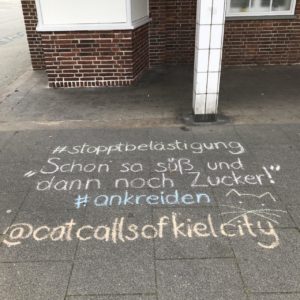 #stopptbelästigung
„Schon so süß und
dann noch Zucker!"
#ankreiden
@catcallsofkielcity